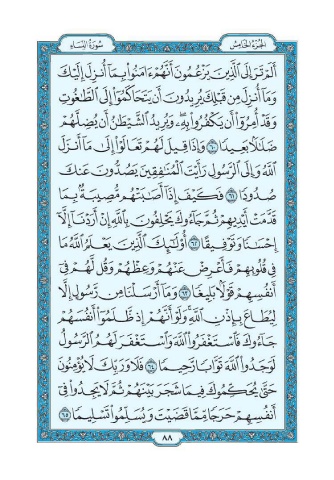 الجزء الخامس سورة النساء
ألم تر إلى الذين يزعمون أنهم ءامنوا بما أنزل إليك
وما أنزل من قبلك يريدون أن يتحاكموا إلى الطغوت
وقد أمروا أن يكفروا به ويريد الشيطن أن يضلهم
ضللا بعيدا ٦٠ وإذا قيل لهم تعالوا إلى ما أنزل
الله وإلى الرسول رأيت المنفقين يصدون عنك
صدودا ٦١ فكيف إذا أصبتهم مصيبة بما
قدمت أيديهم ثم جاءوك يحلفون بالله إن أردنا إلا
إحسنا وتوفيقا ٦٢ أولئك الذين يعلم الله ما
في قلوبهم فأعرض عنهم وعظهم وقل لهم في
أنفسهم قولا بليغا ٦٣ وما أرسلنا من رسول إلا
ليطاع بإذن الله ولو أنهم إذ ظلموا أنفسهم
جاءوك فاستغفروا الله واستغفر لهم الرسول
لوجدوا الله توابا رحيما ٦٤ فلا وربك لا يؤمنون
حتى يحكموك فيما شجر بينهم ثم لا يجدوا في
أنفسهم حرجا مما قضيت ويسلموا تسليما ٦٥
٨٨